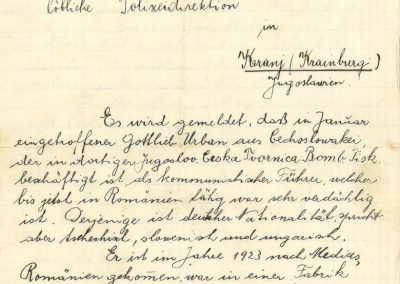 Löbliche Polizeidirektion
in
Keranj (Krainburg)
Jugoslawien.
Es wird gemeldet, daß in Januar
eingetroffener Gottlieb Urban aus Čechoslowakei
der in dortiger Jugoslov. Češka Tvornica Bomb. Tisk.
beschäftigt ist als kommunistischer Führer, welcher
bis jetzt in Romänien tätig, war sehr verdächtig
ist. Derjenige ist deutscher Nationalität, spricht
aber tschechist, slovenist und ungarish.
Er ist im Jahre 1923 nach Medias
Romänien gekom̄en, war in einer Fabrik